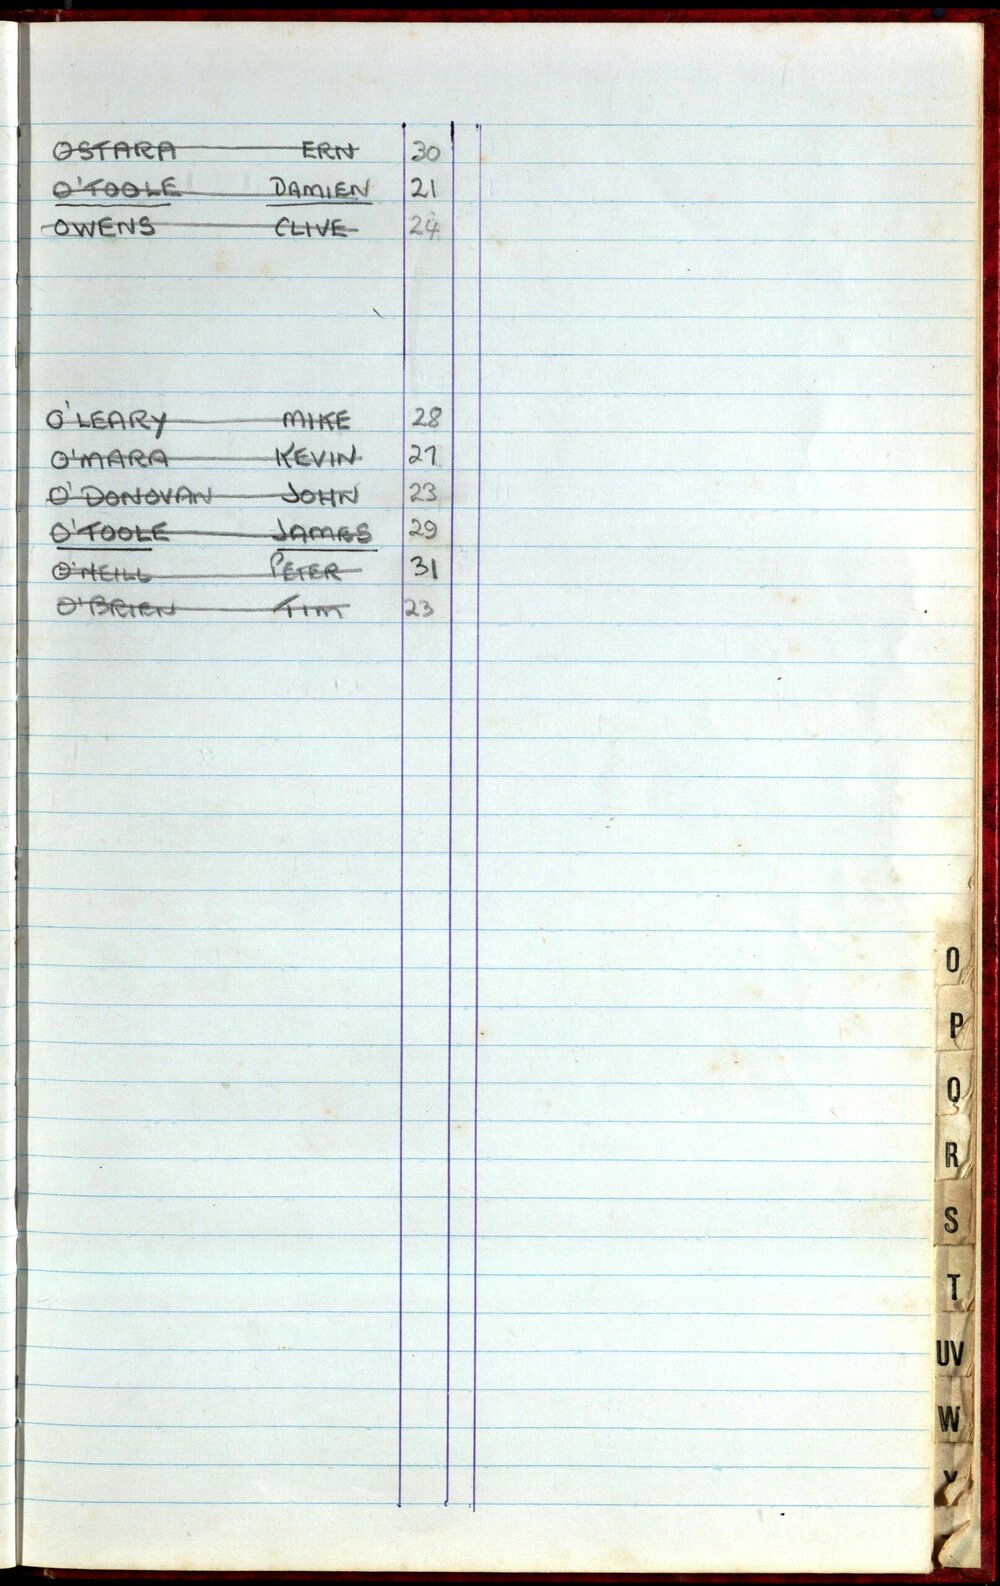 OSTARA ERN 30
O'TOOLE DAMIEN 21
OWENS CLIVE 24
O'LEARY MIKE 28
O'MARA KEVIN 27
O'DONOVAN JOHN 23
O'TOOLE JAMES 29
O'NEILL PETER 31
O'BRIEN TIM 23
O
P
Q
R
S
T
UV
W
Y